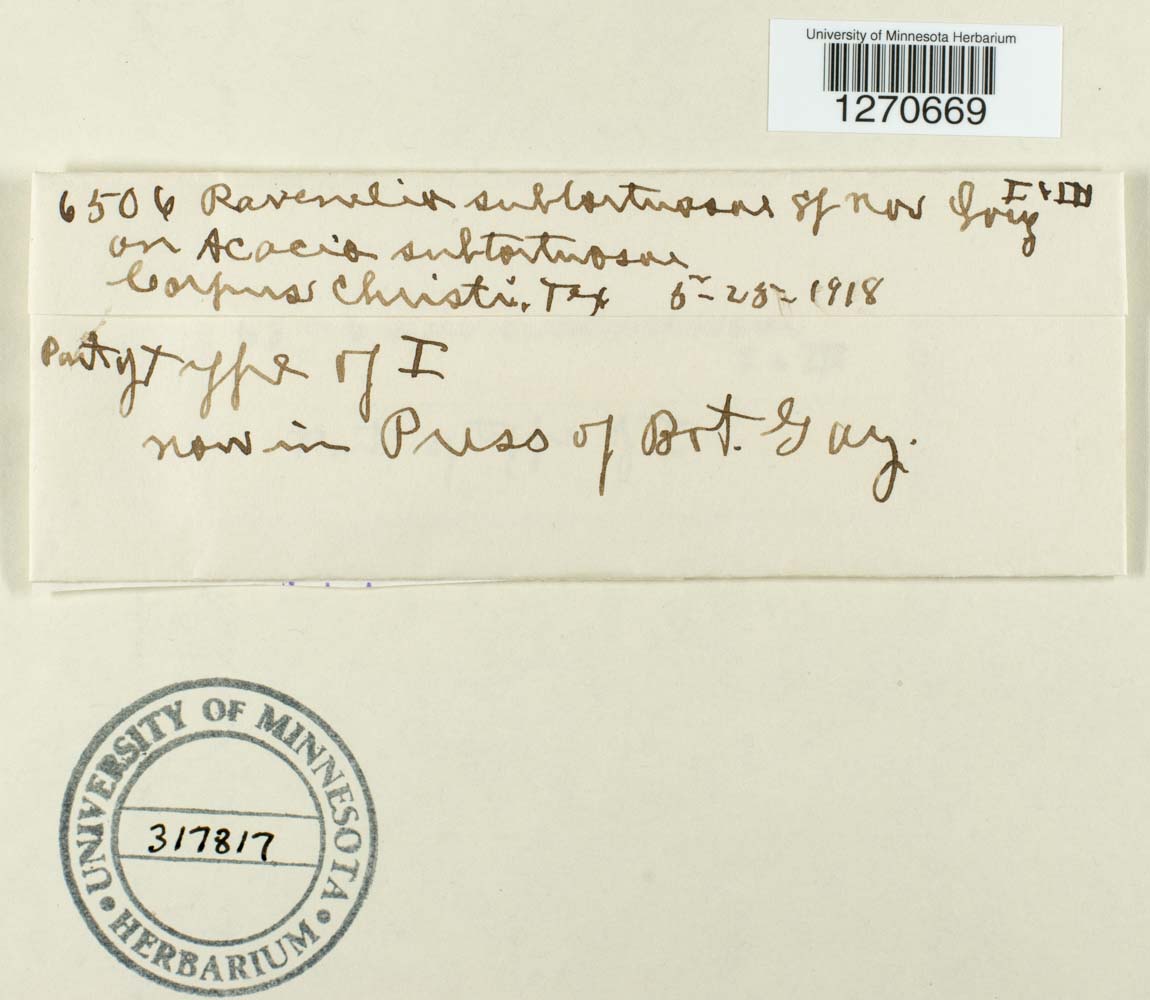 University of Minnesota Herbarium
1270669
6506 Ravenelia subtortuosae sp nov Long I + III
on Acacia subtortuosae
Corpus Christi, Tex 5-25-1918
type of I
now in Press of Bot. Gaz.
UNIVERSITY OF MINNESOTA
317817
HERBARIUM